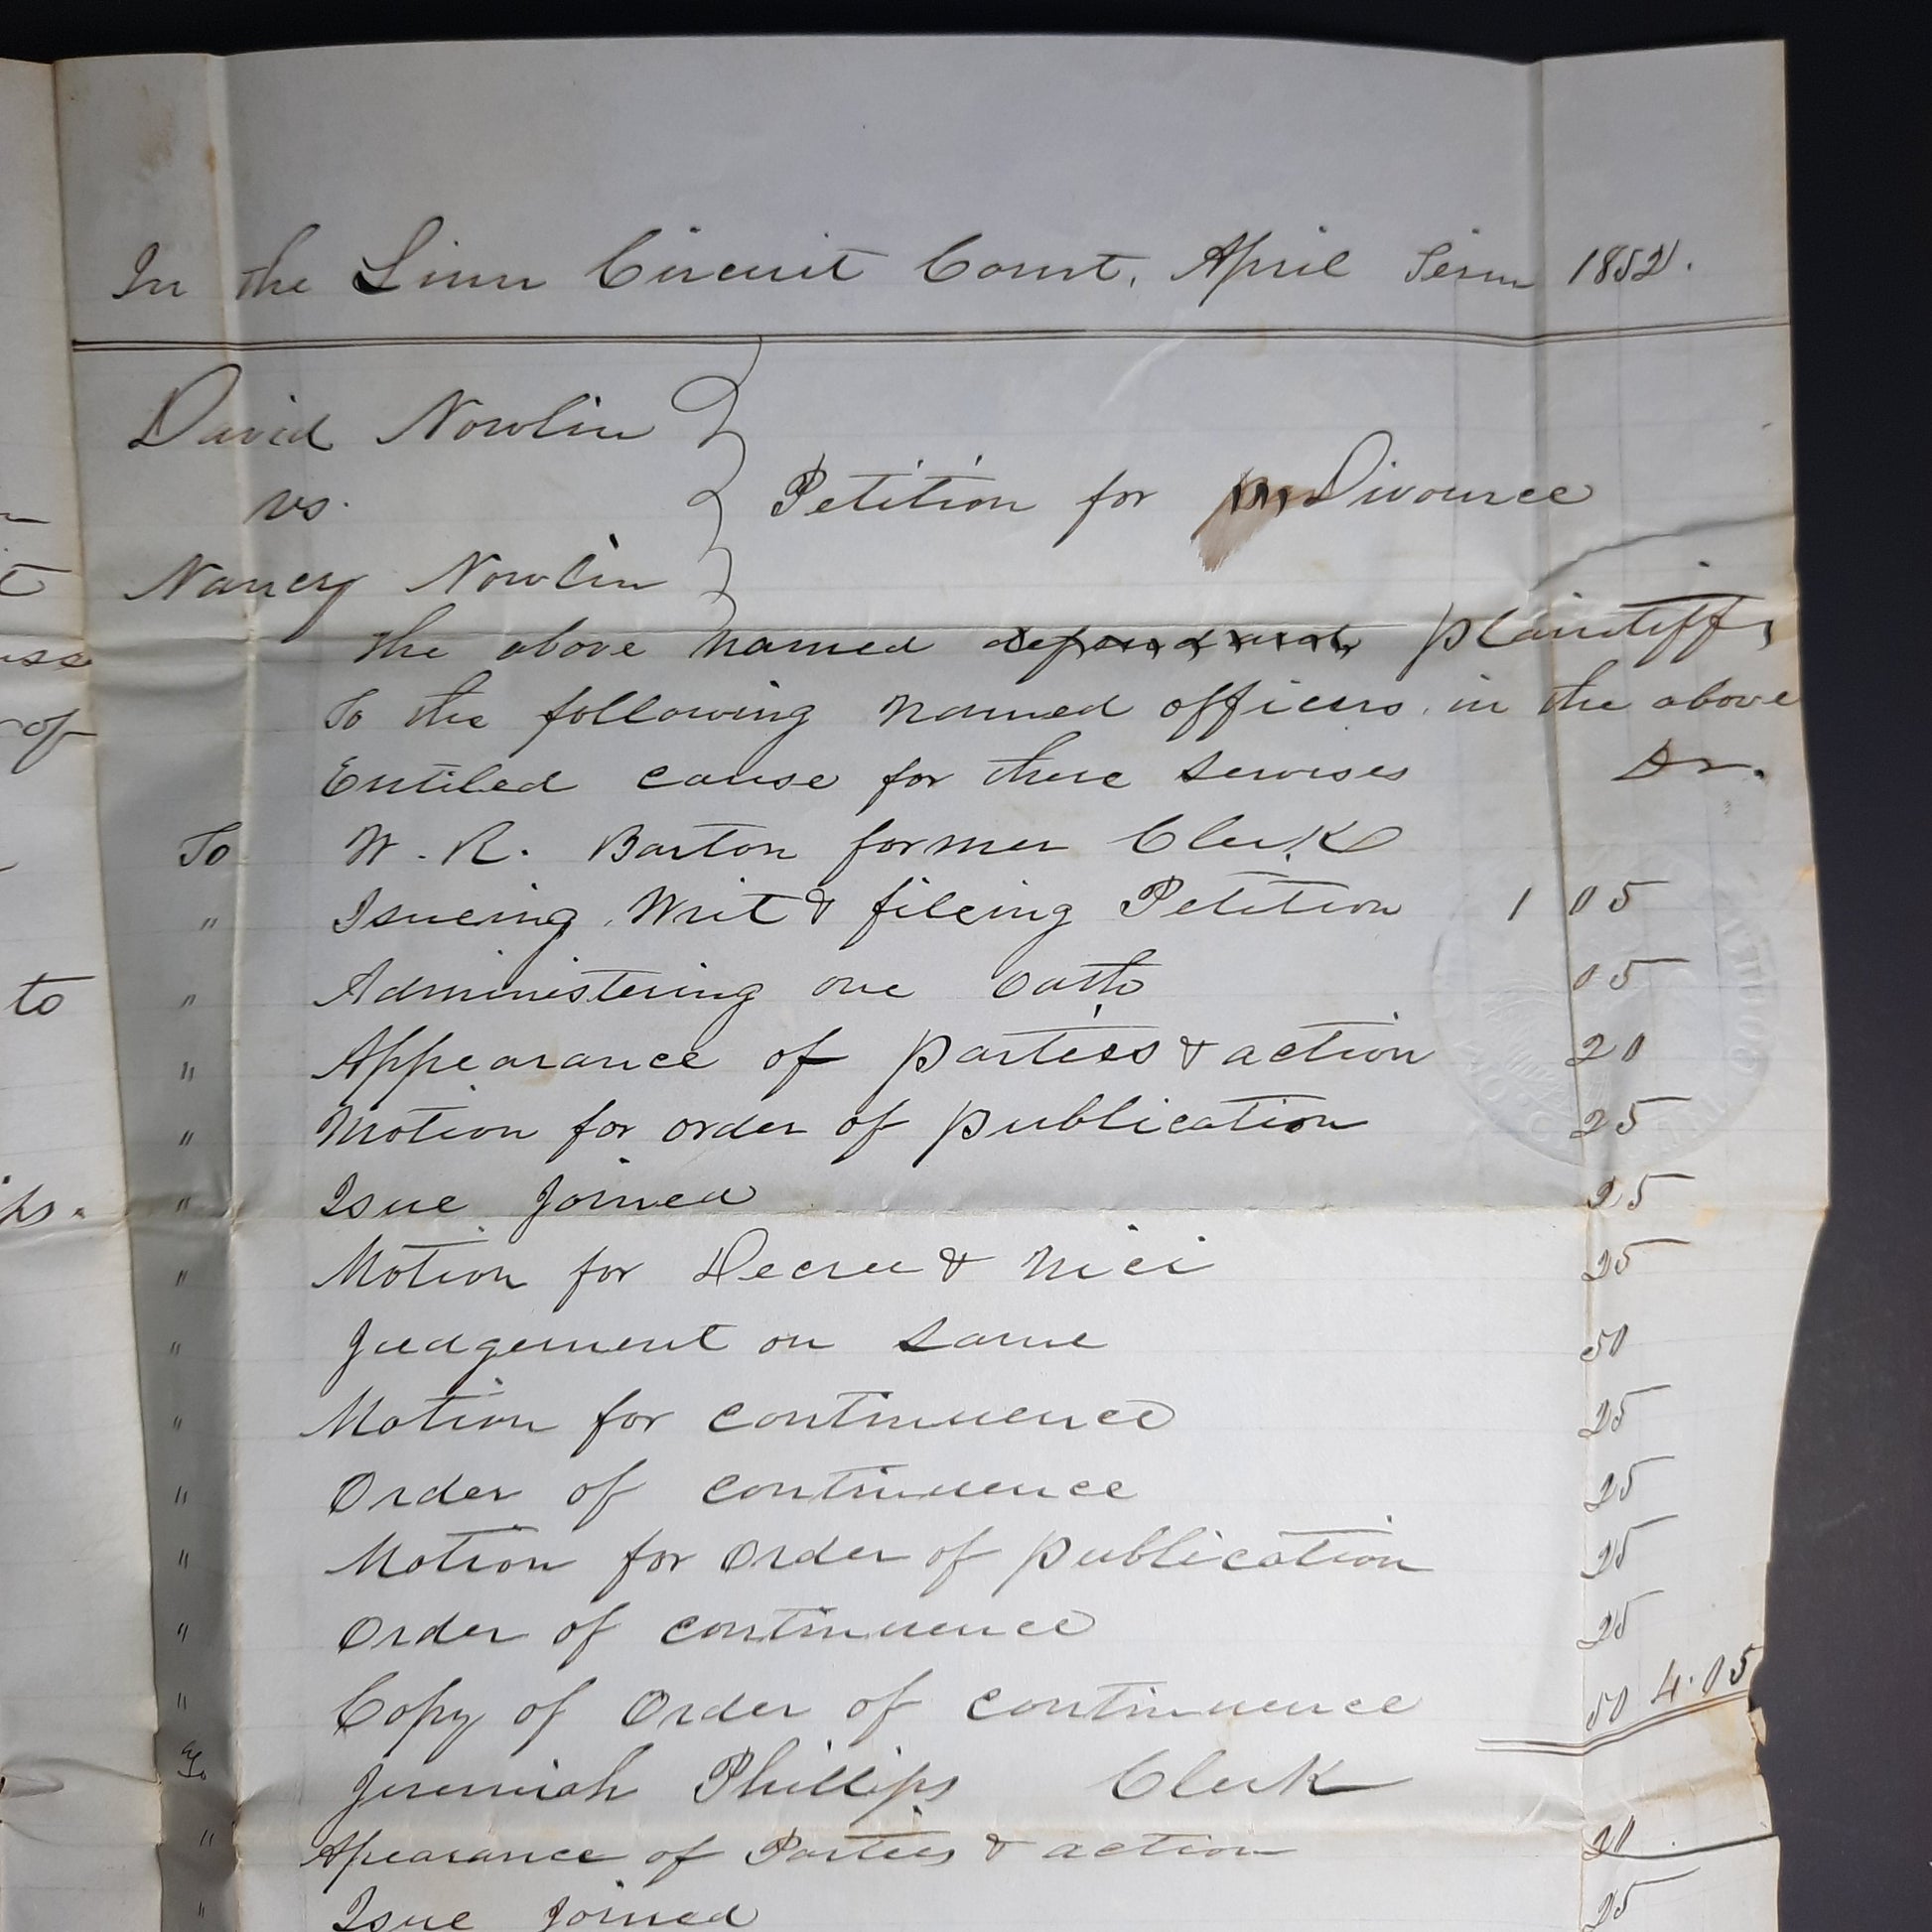 In the Linn Circuit Court, April Term 1852.
David Nowlin
vs. Petition for Divource
Nancy Nowlin
the above named defendant plaintiff
To the following named officers in the above
Entiled cause for there servises Dr.
To W. R. Barton former Clerk
" Isueing Writ & fileing Petition 1 05
" Administering one Oath 05
" Appearance of parties & action 20
" Motion for order of publication 25
" Isue Joined 25
" Motion for Decree & Nici 25
" Judgement on same 50
" Motion for continuence 25
" Order of continuence 25
" Motion for order of publication 25
" Order of continuence 25
" Copy of Order of continuence 50 4.05
To Jeremiah Phillips Clerk
" Apearance of Parties & action 20
" Isue Joined 25
to
of